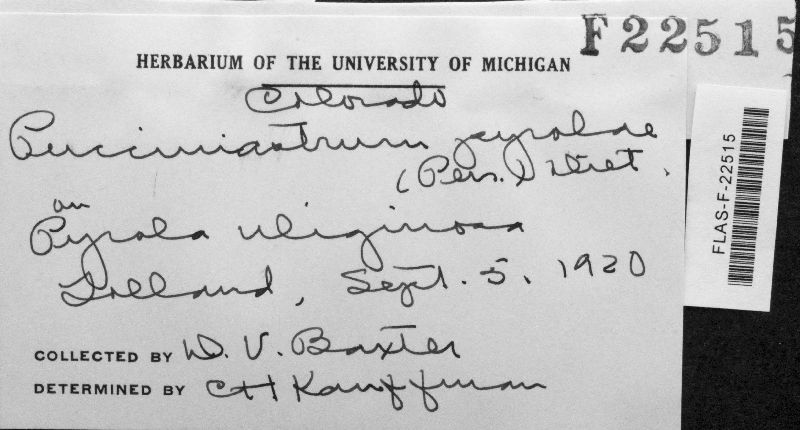 F22515
HERBARIUM OF THE UNIVERSITY OF MICHIGAN
Colorado
Pucciniastrum pyrolae
(Pers.) Diet.
on
Pyrola uliginosa
Tolland, Sept. 5, 1920
COLLECTED BY D. V. Baxter
DETERMINED BY CH Kauffman
FLAS-F-22515